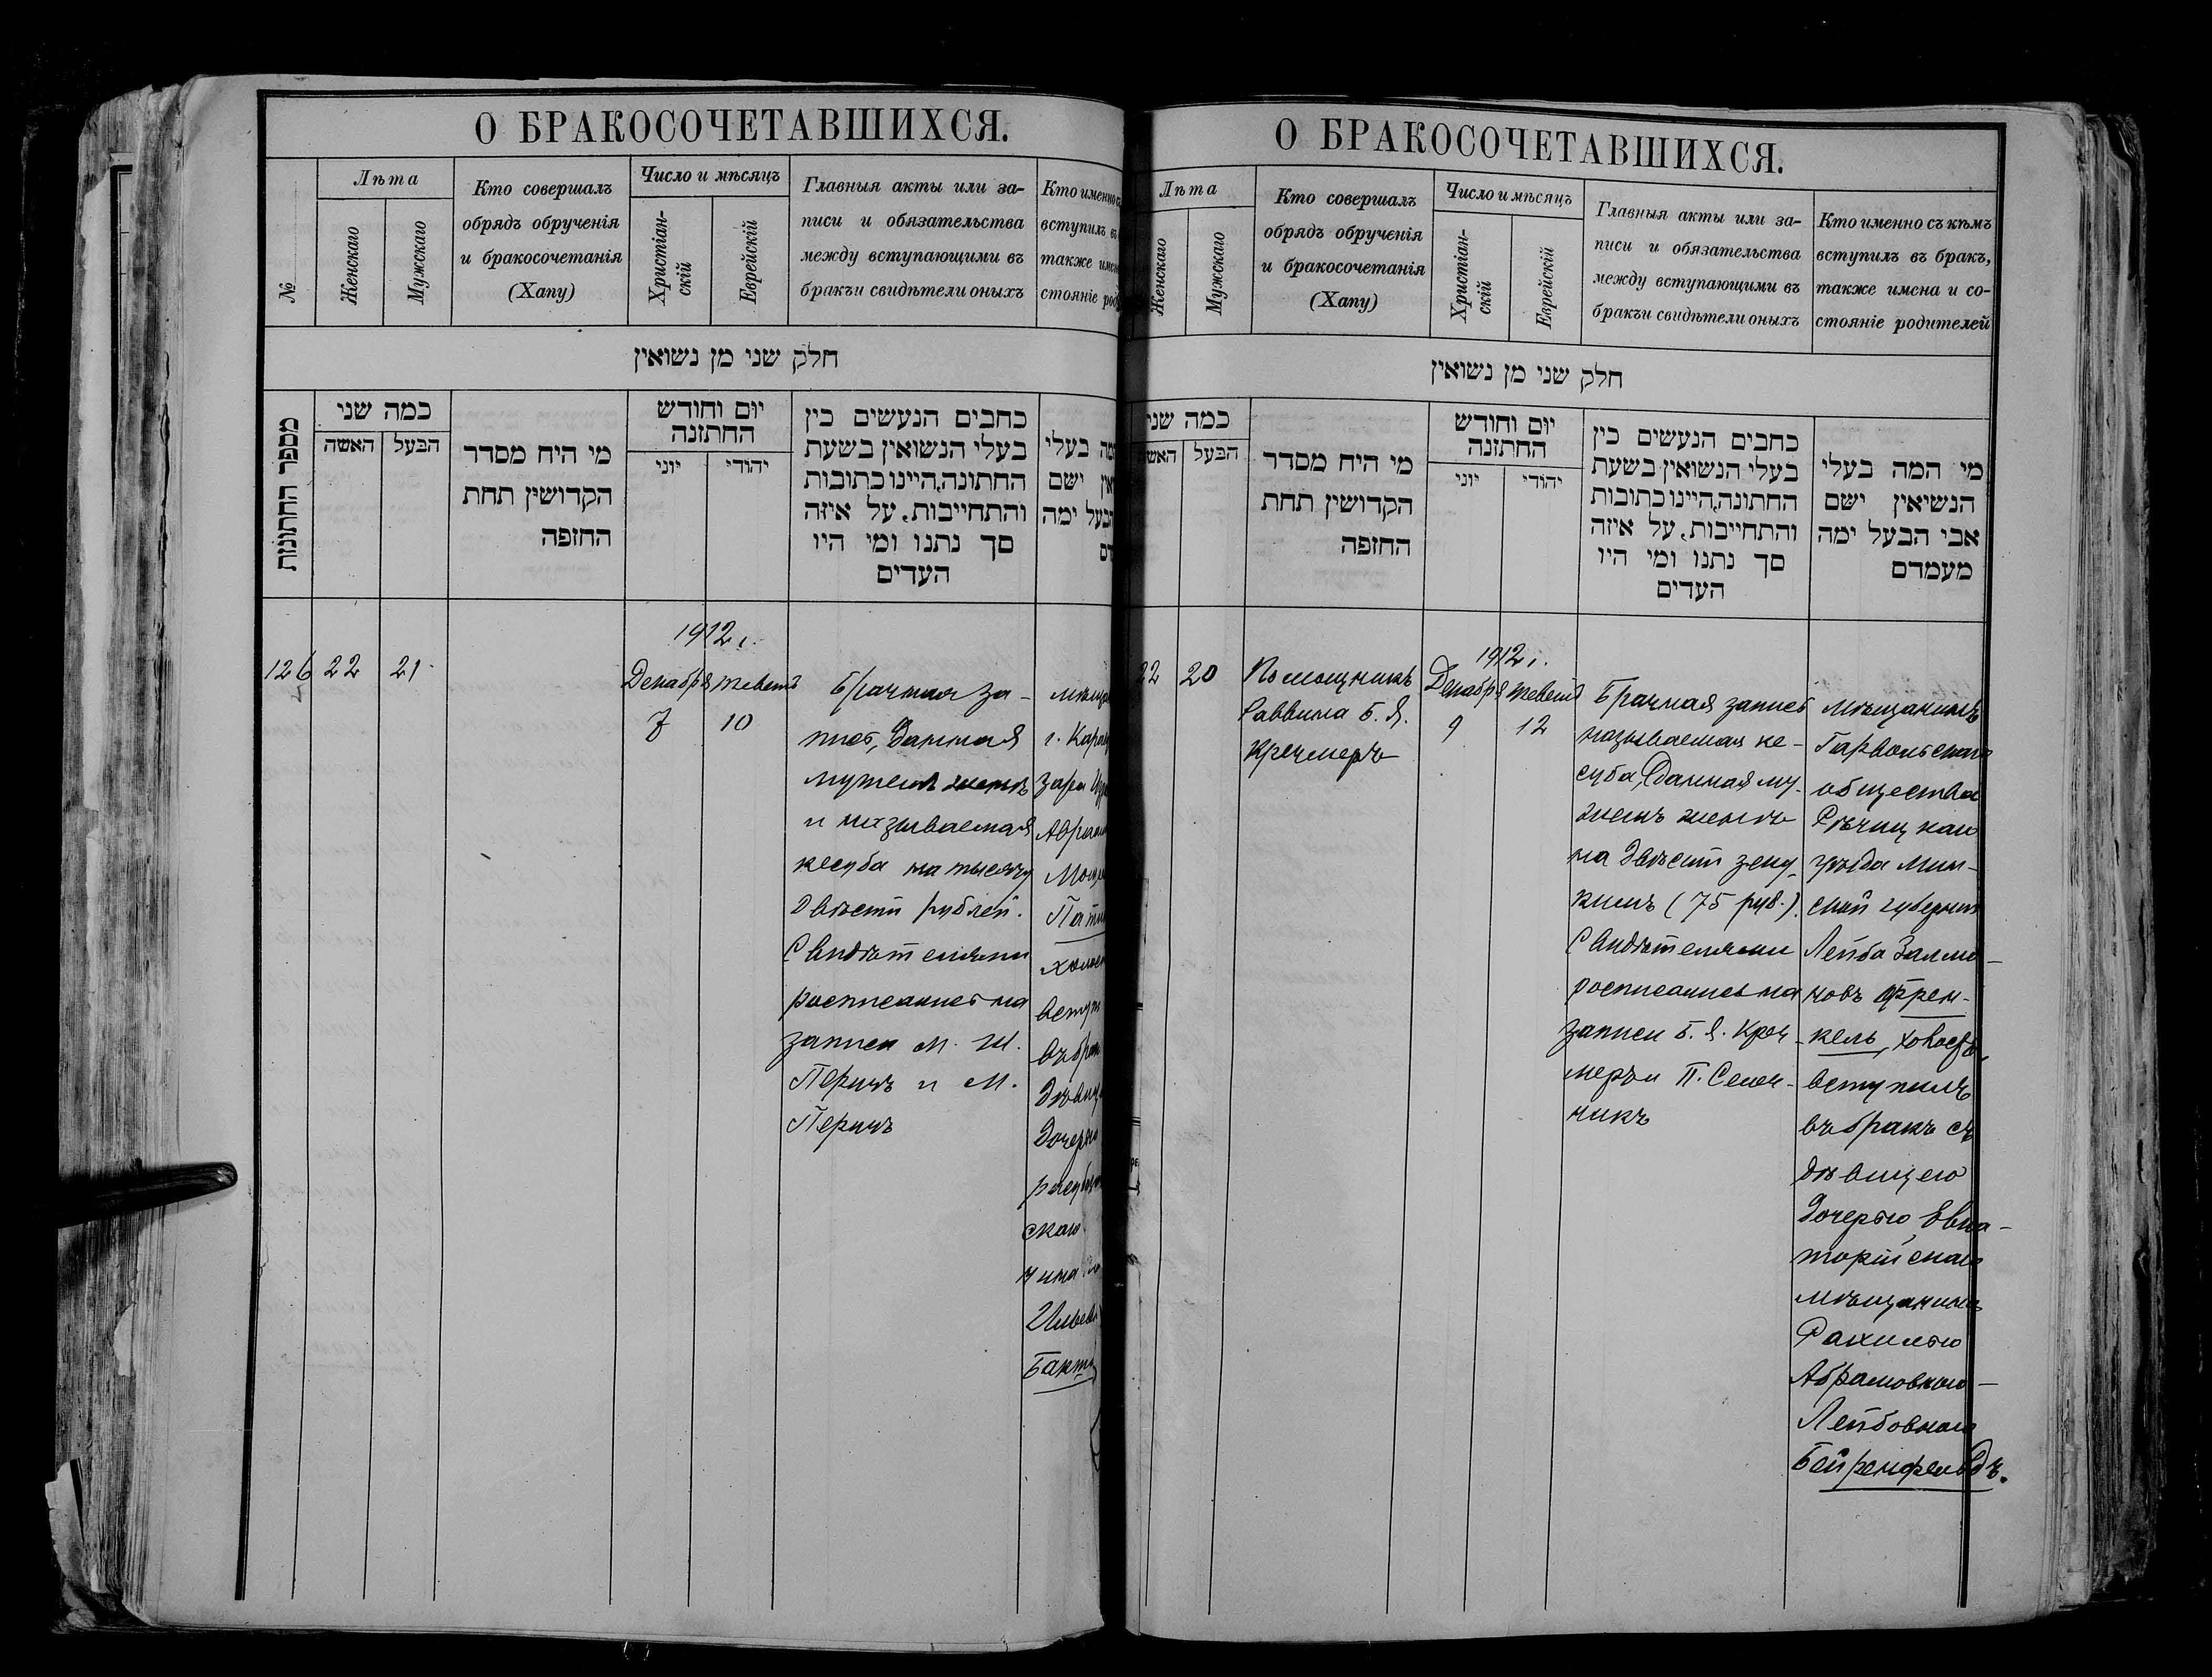 О БРАКОСОЧЕТАВШИХСЯ.
№
Лѣта
Женскаго
Мужскаго
Кто совершалъ
обрядъ обрученія
и бракосочетанія
(Хапу)
Число и мѣсяцъ
Христіан-
скій
Еврейскій
Главныя акты или за-
писи и обязательства
между вступающими въ
бракъи свидѣтели оныхъ
Кто именно
вступилъ
также
стояніе
חלק שני מן נשואין
מספר החתונות
כמה שני
האשה
הבעל
מי היח מסדר
הקדושין תחת
החופה
יום וחודש
החתונה
יוני
יהודי
כתבים הנעשים בין
בעלי הנשואין בשעת
החתונה, היינו כתובות
והתחייבות, על איזה
סך נתנו ומי היו
העדים
בעלי
ישם
ימה
126
22
21
1912 г.
Декабря
7
Теветъ
10
Брачная за-
пись, данная
мужемъ женѣ
и называемая
кесуба на тысячу
двѣсти рублей.
Свидѣтелями
росписались на
записи М. Ш.
Перичъ и М.
Перичъ
г.
О БРАКОСОЧЕТАВШИХСЯ.
Лѣта
Женскаго
Мужскаго
Кто совершалъ
обрядъ обрученія
и бракосочетанія
(Хапу)
Число и мѣсяцъ
Христіан-
скій
Еврейскій
Главныя акты или за-
писи и обязательства
между вступающими въ
бракъи свидѣтели оныхъ
Кто именно съ кѣмъ
вступилъ въ бракъ,
также имена и со-
стояніе родителей
חלק שני מן נשואין
כמה שני
האשה
הבעל
מי היח מסדר
הקדושין תחת
החופה
יום וחודש
החתונה
יוני
יהודי
כתבים הנעשים בין
בעלי הנשואין בשעת
החתונה, היינו כתובות
והתחייבות, על איזה
סך נתנו ומי היו
העדים
מי המה בעלי
הנשיאין ישם
אבי הבעל ימה
מעמדם
22
20
Помощникъ
Раввина Б. Я.
Кречмеръ
1912 г.
Декабря
9
Теветъ
12
Брачная запись
называемая ке-
суба, данная му-
жемъ женѣ
на двѣсти зеку-
кимъ (75 руб.).
Свидѣтелями
росписались на
записи Б. Я. Креч-
меръ и П. Сенен-
никъ
Мѣщанинъ
общества
Рѣчицкаго
уѣзда Мин-
ской губерніи
Лейба Залма-
новъ Френ-
кель, холостъ,
вступилъ
въ бракъ съ
дѣвицею
дочерью Евпа-
торійскаго
мѣщанина
Рахилью
Абрамовною-
Лейбовною
Бейренфельдъ.